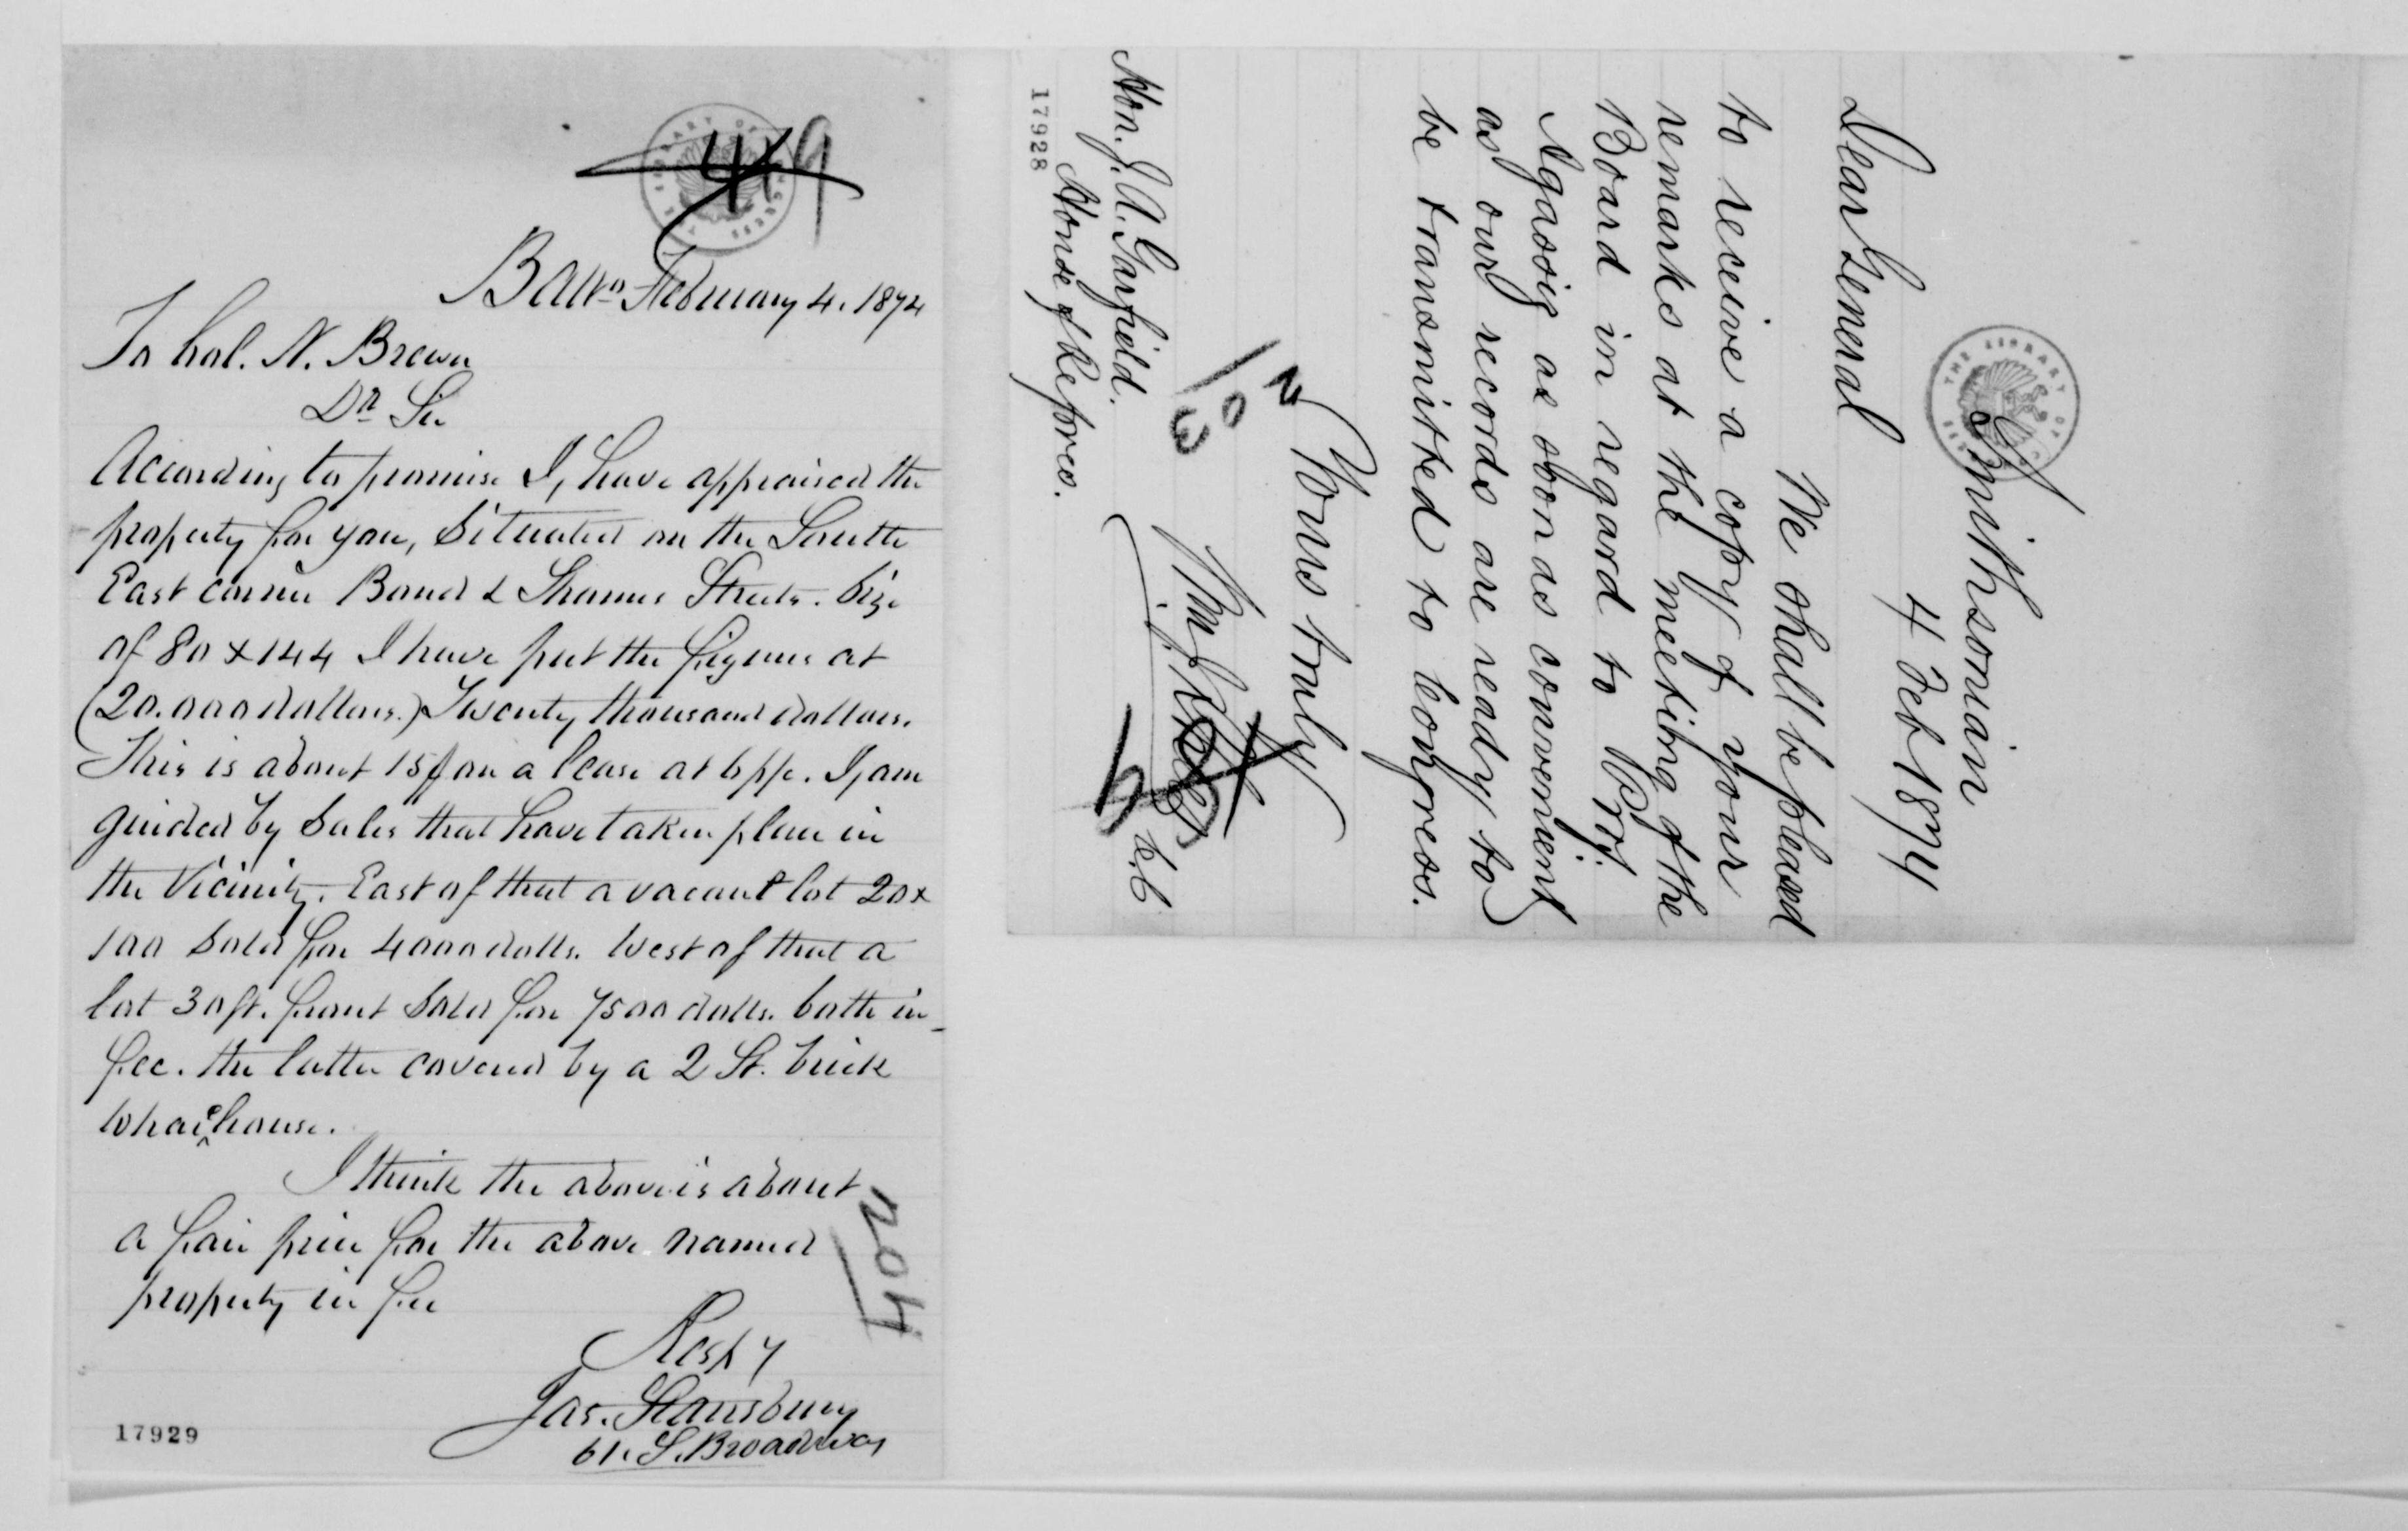 419
Balto February 4. 1874
To Col. N. Brewer
Dr Sir
According to promise I, have appraised the
property for you, Situated on the South
East corner Bond & Thames Streets. Size
of 80 x 144 I have put the figures at
(20.000 dollars.) Twenty thousand dollars.
This is about 15 for a lease at 6 pp. I, am
guided by Sales that have taken place in
the Vicinity. East of that a vacant lot 20 x
100 Sold for 4000 dolls. West of that a
lot 30 ft. front Sold for 7500 dolls. both in
fee. the latter covered by a 2 St. brick
Whare house.
I think the above is about
a fair price for the above named
property in fee
Respy
Jas. Stansbury
61. S. Broadway
404
17929
Smithsonian
4 Feb 1874
Dear General
We shall be pleased
to receive a copy of your
remarks at the meeting of the
Board in regard to Prof.
Agassiz as soon as convenient
as our records are ready to
be transmitted to Congress.
Yours truly
Hon. J. A. Garfield.
House of Repforces.
17928
THE LIBRARY OF CONGRESS